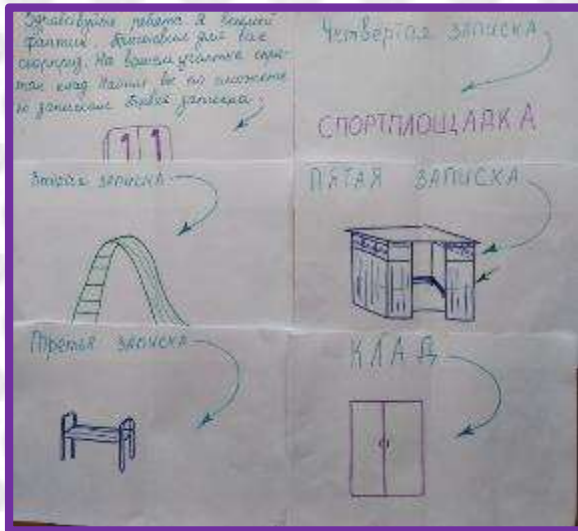 Здравствуйте ребята Я весёлый
фантик, приготовил для вас
сюрприз. На вашем участке спря-
тан клад Найти вы по
запискам Первая записка
1 1
Вторая записка
Третья записка
Четвертая записка
СПОРТПЛОЩАДКА
ПЯТАЯ ЗАПИСКА
КЛАД